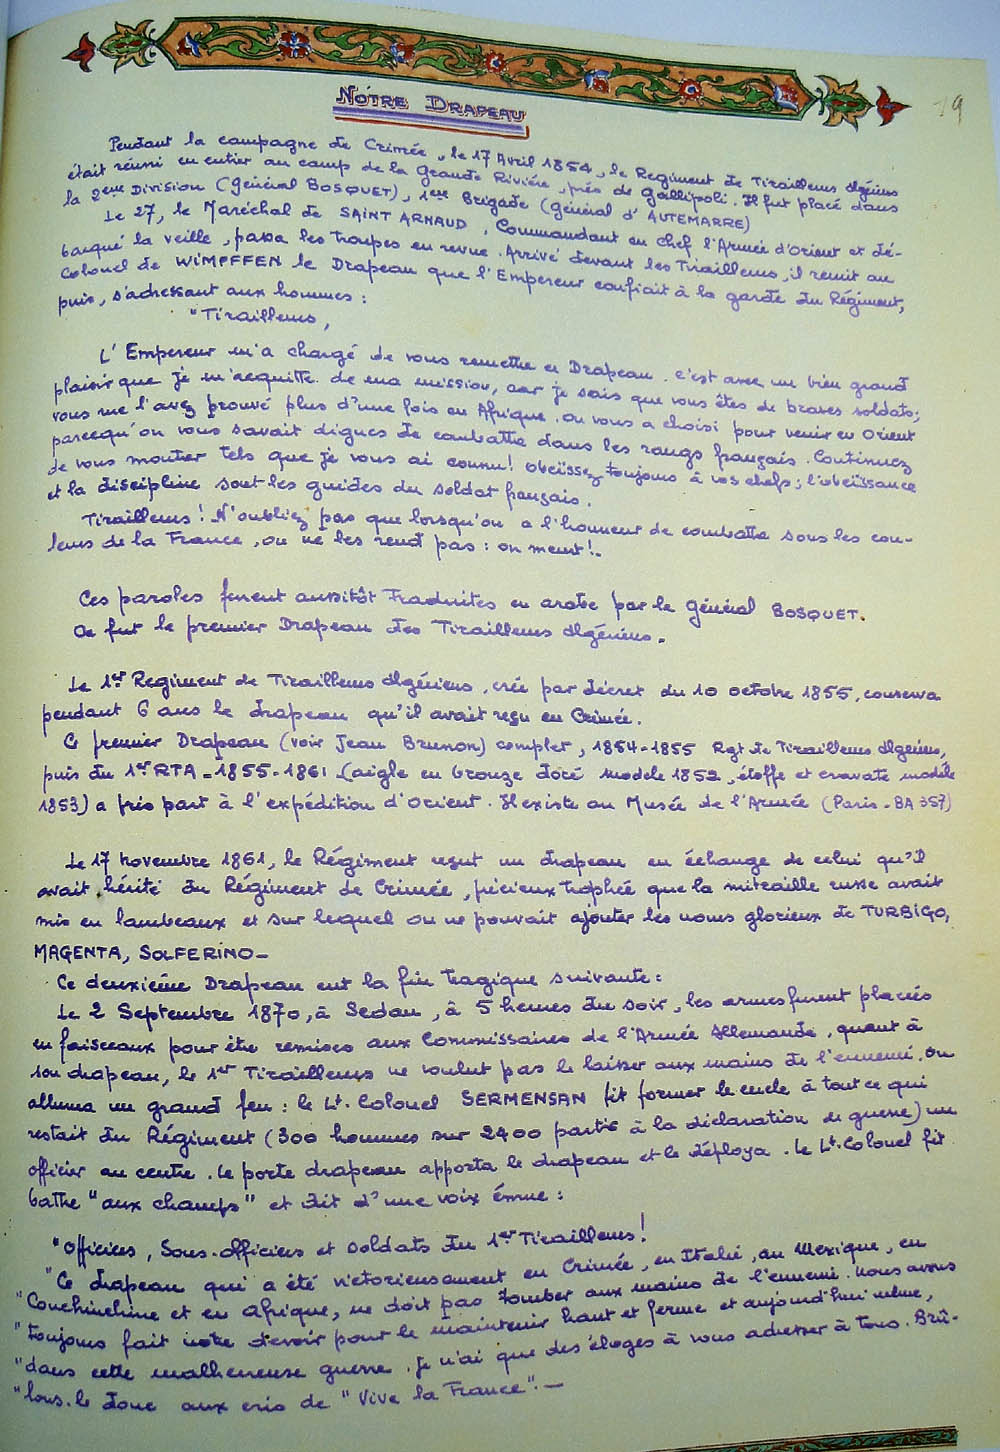 19
NOTRE DRAPEAU
Pendant la campagne de Crimée, le 17 Avril 1854, le Regiment de Tirailleurs Algériens
était réuni en entier au camp de la Grande Rivière, près de Gallipoli. Il fut placé dans
la 2ème Division (Général BOSQUET), 1ère Brigade (Général d'AUTEMARRE)
Le 27, le Maréchal de SAINT ARNAUD, Commandant en chef l'Armée d'Orient et dé-
barqué la veille, passa les troupes en revue. Arrivé devant les Tirailleurs, il remit au
Colonel de WIMPFFEN le Drapeau que l'Empereur confiait à la garde du Régiment,
puis, s'adressant aux hommes :
"Tirailleurs,
L'Empereur m'a chargé de vous remettre ce Drapeau. c'est avec un bien grand
plaisir que je m'acquitte de ma mission, car je sais que vous êtes de braves soldats;
vous me l'avez prouvé plus d'une fois en Afrique. On vous a choisi pour venir en Orient
parcequ'on vous savait dignes de combattre dans les rangs français. Continuez
de vous montrer tels que je vous ai connu! obeïssez toujours à vos chefs; l'obeïssance
et la discipline sont les guides du soldat français.
Tirailleurs! N'oubliez pas que lorsqu'on a l'honneur de combattre sous les cou-
leurs de la France, on ne les rend pas : on meurt!.
Ces paroles furent aussitôt Traduites en arabe par le Général BOSQUET.
Ce fut le premier Drapeau des Tirailleurs Algériens.
Le 1er Regiment de Tirailleurs Algériens, crée par décret du 10 octobre 1855, conserva
pendant 6 ans le drapeau qu'il avait reçu en Crimée.
Ce premier Drapeau (voir Jean Brunon) complet, 1854-1855 Rgt de Tirailleurs Algériens,
puis du 1er RTA - 1855-1861 (aigle en bronze doré modèle 1852, étoffe et cravate modèle
1853) a pris part à l'expédition d'Orient. Il existe au Musée de l'Armée (Paris - BA 357)
Le 17 novembre 1861, le Régiment reçut un drapeau en échange de celui qu'il
avait hérité du Régiment de Crimée, précieux trophée que la mitraille russe avait
mis en lambeaux et sur lequel on ne pouvait ajouter les noms glorieux de TURBIGO,
MAGENTA, SOLFERINO-
Ce deuxième Drapeau eut la fin tragique suivante :
Le 2 Septembre 1870, à Sedan, à 5 heures du soir, les armes furent placées
en faisceaux pour être remises aux Commissaires de l'Armée Allemande, quant à
son drapeau, le 1er Tirailleurs ne voulut pas le laisser aux mains de l'ennemi. On
alluma un grand feu : le Lt. Colonel SERMENSAN fit former le cercle à tout ce qui
restait du Régiment (300 hommes sur 2400 partis à la déclaration de guerre) un
officier au centre. Le porte drapeau apporta le drapeau et le déploya. Le Lt. Colonel fit
battre "aux champs" et dit d'une voix émue :
"Officiers, Sous-officiers et soldats du 1er Tirailleurs!
"Ce drapeau qui a été victorieusement en Crimée, en Italie, au Mexique, en
"Conchinchine et en Afrique, ne doit pas tomber aux mains de l'ennemi. Nous avons
"toujours fait notre devoir pour le maintenir haut et ferme et aujourd'hui même,
"dans cette malheureuse guerre. Je n'ai que des éloges à vous adresser à tous. Brû-
"lons-le donc aux cris de "Vive la France".-